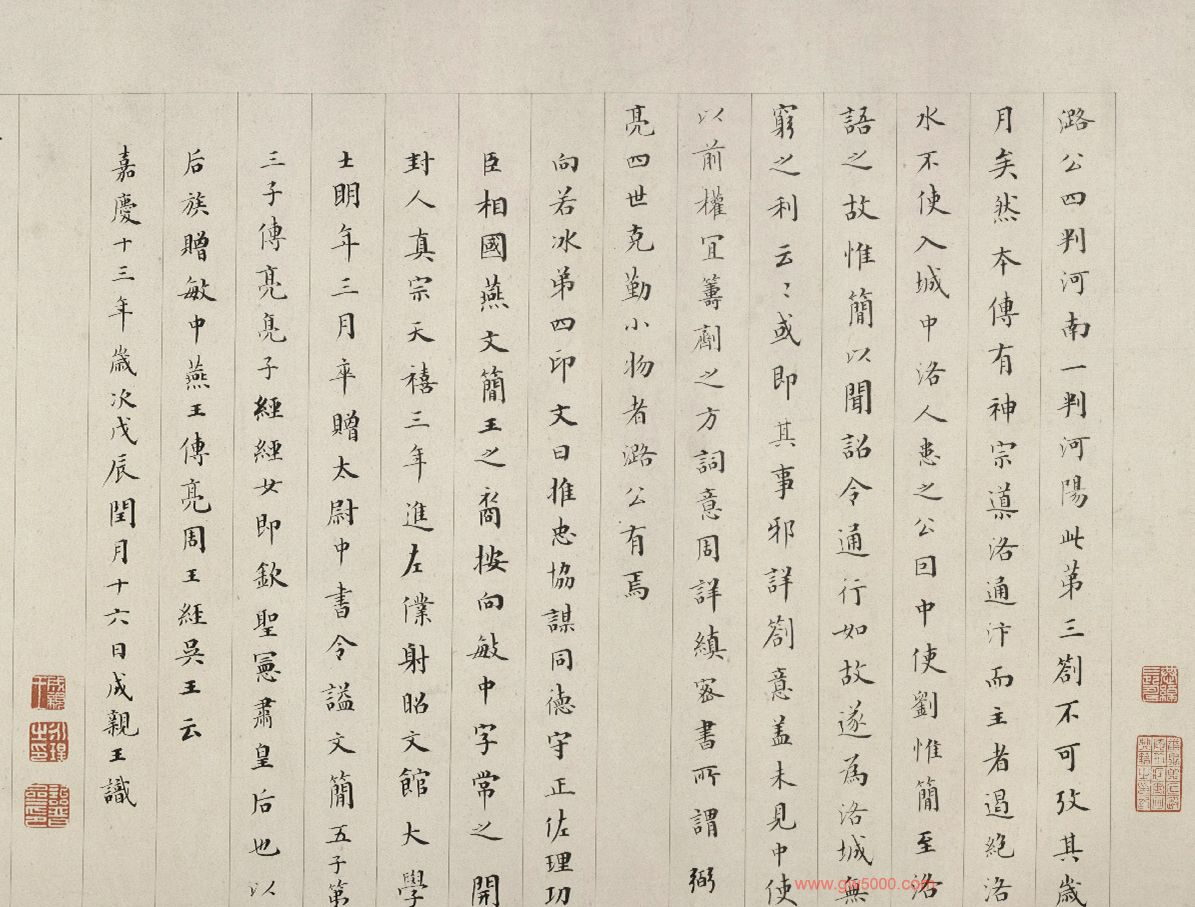 潞公四判河南一判河陽此苐三劄不可攷其歲
月矣然本傳有神宗導洛通汴而主者遏絕洛
水不使入城中洛人患之公因中使劉惟簡至洛
語之故惟簡以聞詔令通行如故遂為洛城無
窮之利云〻或即其事邪詳劄意蓋未見中使
以前權宜籌劑之方詞意周詳縝密書所謂弼
亮四世克勤小物者潞公有焉
向若冰弟四印文曰推忠協謀同德守正佐理功
臣相國燕文簡王之裔按向敏中字常之開
封人真宗天禧三年進左僕射昭文館大學
士明年三月卒贈太尉中書令謚文簡五子第
三子傳亮亮子經經女即欽聖憲肅皇后也以
后族贈敏中燕王傳亮周王經吳王云
嘉慶十三年歲次戊辰閏月十六日成親王識
成親王
永瑆之印
www.gw5000.com